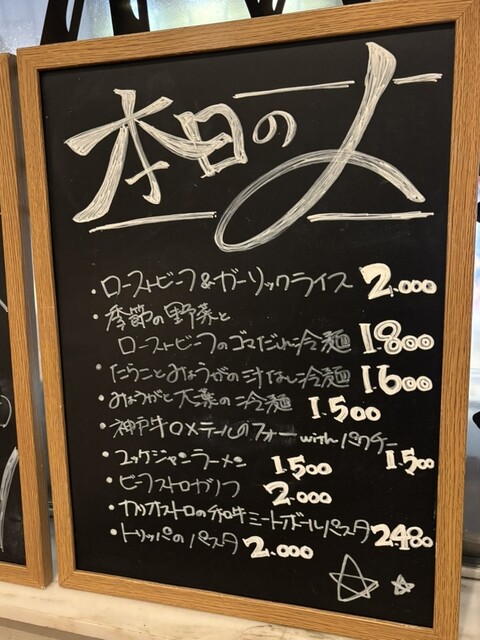 本日の〆
・ローストビーフ&ガーリックライス 2.000
・季節の野菜と
ローストビーフのゴマだれ冷麺 1.800
・たらことみょうがの汁なし冷麺 1.600
・みょうがと大葉の冷麺 1.500
・神戸牛のメテールのフォー with パクチー 1.500
・ユッケジャンラーメン 1500
・ビーフストロガノフ 2.000
・カリオストロの和牛ミートボールパスタ 2.480
・トリッパのパスタ 2.000